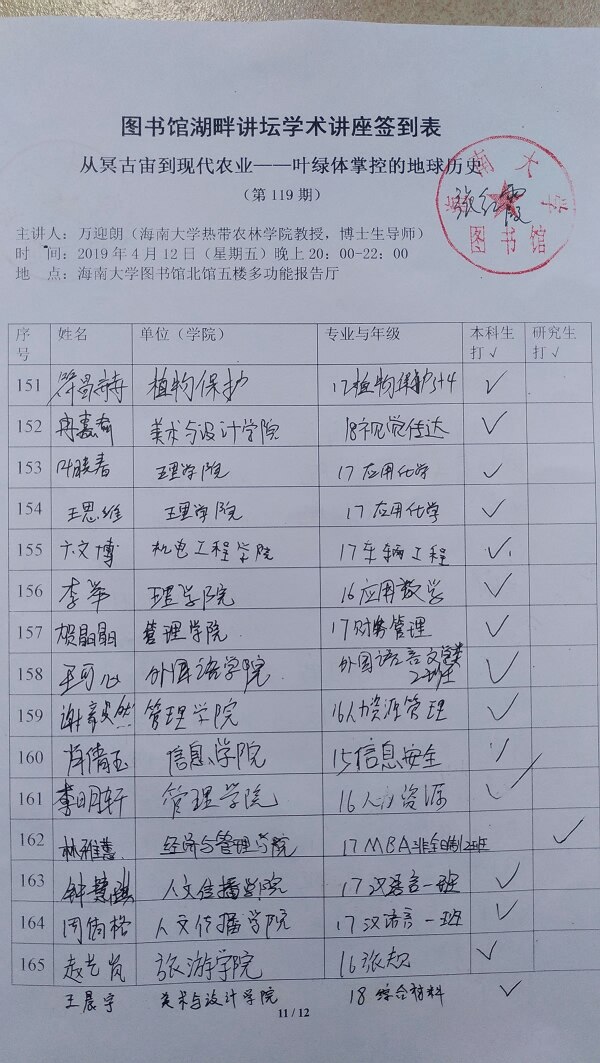 图书馆湖畔讲坛学术讲座签到表
从冥古宙到现代农业——叶绿体掌控的地球历史
（第 119 期）
海南大学
图书馆
张红霞
主讲人：万迎朗（海南大学热带农林学院教授，博士生导师）
时　间：2019 年 4 月 12 日（星期五）晚上 20：00-22：00
地　点：海南大学图书馆北馆五楼多功能报告厅
序号 姓名 单位（学院） 专业与年级 本科生打√ 研究生打√
151 植物保护 17植物保护3+4 √
152 美术与设计学院 18视觉传达 √
153 叶晓春 理学院 17 应用化学 √
154 王思维 理学院 17 应用化学 √
155 文博 机电工程学院 17车辆工程 √
156 李华 理学院 16应用数学 √
157 贺晶晶 管理学院 17财务管理 √
158 王可心 外国语学院 外国语言文学类2班 √
159 谢 管理学院 16人力资源管理 √
160 肖倩玉 信息学院 15信息安全 √
161 李明轩 管理学院 16人力资源 √
162 林雅慧 经济与管理学院 17 MBA非全日制2班 √
163 钟慧 人文传播学院 17 汉语言一班 √
164 周 人文传播学院 17 汉语言一班 √
165 赵艺岚 旅游学院 16旅规 √
王晨宇 美术与设计学院 18 综合材料 √
11 / 12